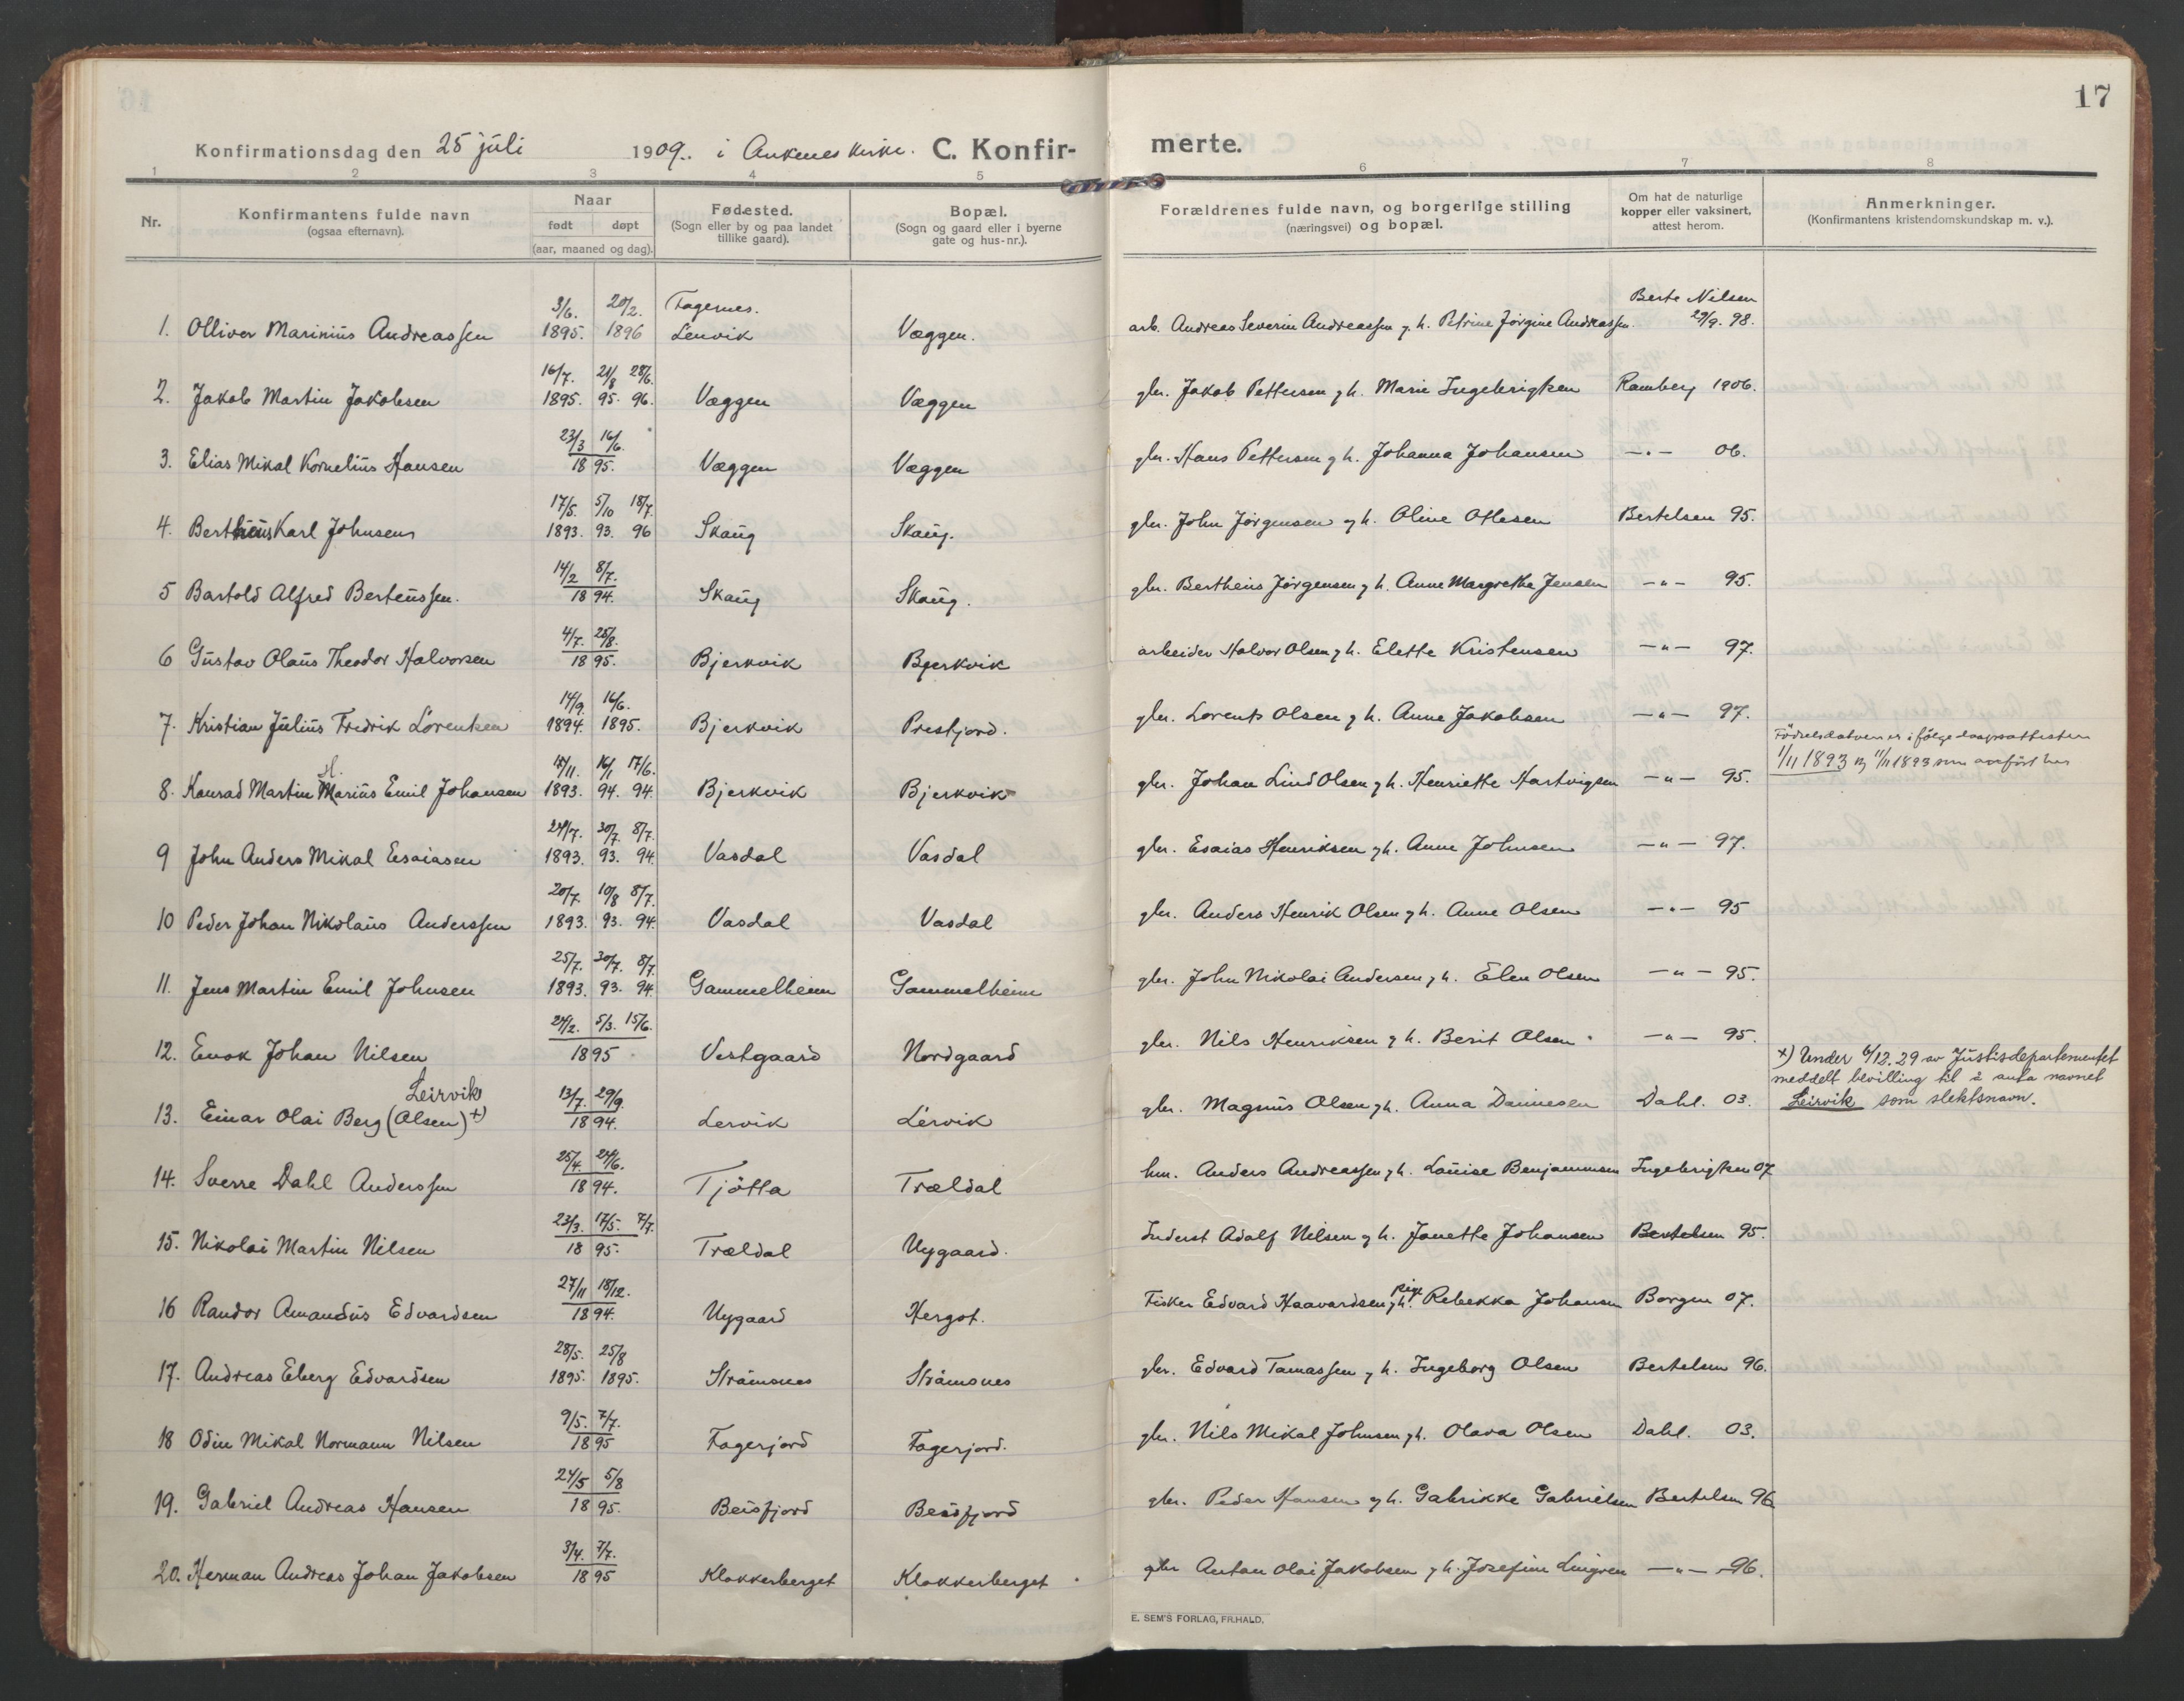 17
Konfirmationsdag den 25 juli 1909. i Ankenes kirke. C. Konfirmerte.
1 2 3 4 5 6 7 8
Nr.
Konfirmantens fulde navn
(ogsaa efternavn).
Naar
født døpt
(aar, maaned og dag).
Fødested.
(Sogn eller by og paa landet
tillike gaard).
Bopæl.
(Sogn og gaard eller i byerne
gate og hus-nr.).
Forældrenes fulde navn, og borgerlige stilling
(næringsvei) og bopæl.
Om hat de naturlige
kopper eller vaksinert,
attest herom.
Anmerkninger.
(Konfirmantens kristendomskundskap m. v.).
3/6. 20/2. Fagernes. Berte Nilsen
1. Olliver Marinius Andreassen 1895. 1896 Lenvik Væggen. arb. Andreas Severin Andreassen g. h. Petrine Jørgine Andreassen. 29/9. 98.
16/7. 21/8 28/6.
2. Jakob Martin Jakobsen 1895. 95. 96. Væggen Væggen gbr. Jakob Pettersen g h. Marie Ingebrigtsen Ramberg 1906.
23/3 16/6.
3. Elias Mikal Kornelius Hansen 1895. Væggen Væggen gbr. Hans Pettersen g h. Johanna Johansen —"— 06.
17/5. 5/10 18/7.
4. Bertheus Karl Johnsen 1893. 93. 96 Skaug Skaug. gbr. John Jørgensen g h. Oline Olesen Bertelsen 95.
14/2 8/7.
5 Bartold Alfred Berteussen. 1894. Skaug Skaug. gbr. Bertheus Jørgensen g h. Anne Margrethe Jensen —"— 95.
4/7. 25/8.
6 Gustav Olaus Theodor Halvorsen 1895. Bjerkvik Bjerkvik arbeider Halvor Olsen g h. Elette Kristensen —"— 97.
14/9. 16/6.
7. Kristian Julius Fredrik Lorentsen 1894. 1895. Bjerkvik Prestjord. gbr. Lorents Olsen g h. Anne Jakobsen —"— 97.
Fødselsdatoen er ifølge daapsattesten
1/11 1893 og 11/11 1893 som anført her
H. 17/11. 16/1 17/6.
8. Konrad Martin Marius Emil Johansen 1893. 94. 94. Bjerkvik Bjerkvik gbr. Johan Lind Olsen g h. Henriette Hartvigsen —"— 95.
24/7. 30/7. 8/7.
9 John Anders Mikal Esaiasen 1893. 93. 94. Vasdal Vasdal gbr. Esaias Henriksen g h. Anne Johnsen —"— 97.
20/7. 10/8 8/7.
10 Peder Johan Nikolaus Anderssen 1893. 93. 94. Vasdal Vasdal gbr. Anders Henrik Olsen g h. Anne Olsen —"— 95
25/7. 30/7. 8/7.
11. Jens Martin Emil Johnsen 1893. 93. 94. Gammelheim Gammelheim gbr. John Nikolai Andersen g h. Elen Olsen —"— 95.
24/2. 5/3. 15/6.
12. Enok Johan Nilsen 1895 Vestgaard Nordgaard gbr. Nils Henriksen g h. Berit Olsen —"— 95.
+) Under 6/12.29 av Justisdepartementet
meddelt bevilling til å anta navnet
Leirvik som slektsnavn.
Leirvik 13/7. 29/9.
13. Einar Olai Berg (Olsen) +) 1894. Lervik Lervik gbr. Magnus Olsen g h. Anna Danniesen Dahl. 03.
25/4. 24/6.
14. Sverre Dahl Anderssen 1894. Tjøtta Trældal hm. Anders Andreassen g h. Louise Benjaminsen Ingebrigtsen 07
23/3. 17/5. 7/7.
15. Nikolai Martin Nilsen 1895. Trældal Nygaard. Inderst Adolf Nilsen g h. Janette Johansen Bertelsen 95.
27/11 18/12. pige
16 Randor Amandus Edvardsen 1894. Nygaard Hergot. Fisker Edvard Haavardsen g h. Rebekka Johansen Borgen 07.
28/5. 25/8
17. Andreas Eberg Edvardsen 1895. 1895. Stråmsnes Stråmsnes gbr. Edvard Tamassen g h. Ingeborg Olsen Bertelsen 96.
9/5. 7/7.
18 Odin Mikal Normann Nilsen 1895 Fagerjord Fagerjord. gbr. Nils Mikal Johnsen g h. Olava Olsen Dahl. 03.
24/5 5/8
19. Gabriel Andreas Hansen 1895. Beisfjord Beisfjord gbr. Peder Hansen g h. Gabrikke Gabrielsen Bertelsen 96
3/4. 7/7.
20. Herman Andreas Johan Jakobsen 1895 Klokkerberget Klokkerberget gbr Antan Olai Jakobsen g h. Josefine Lingren —"— 96.
E. SEM'S FORLAG, FR.HALD.